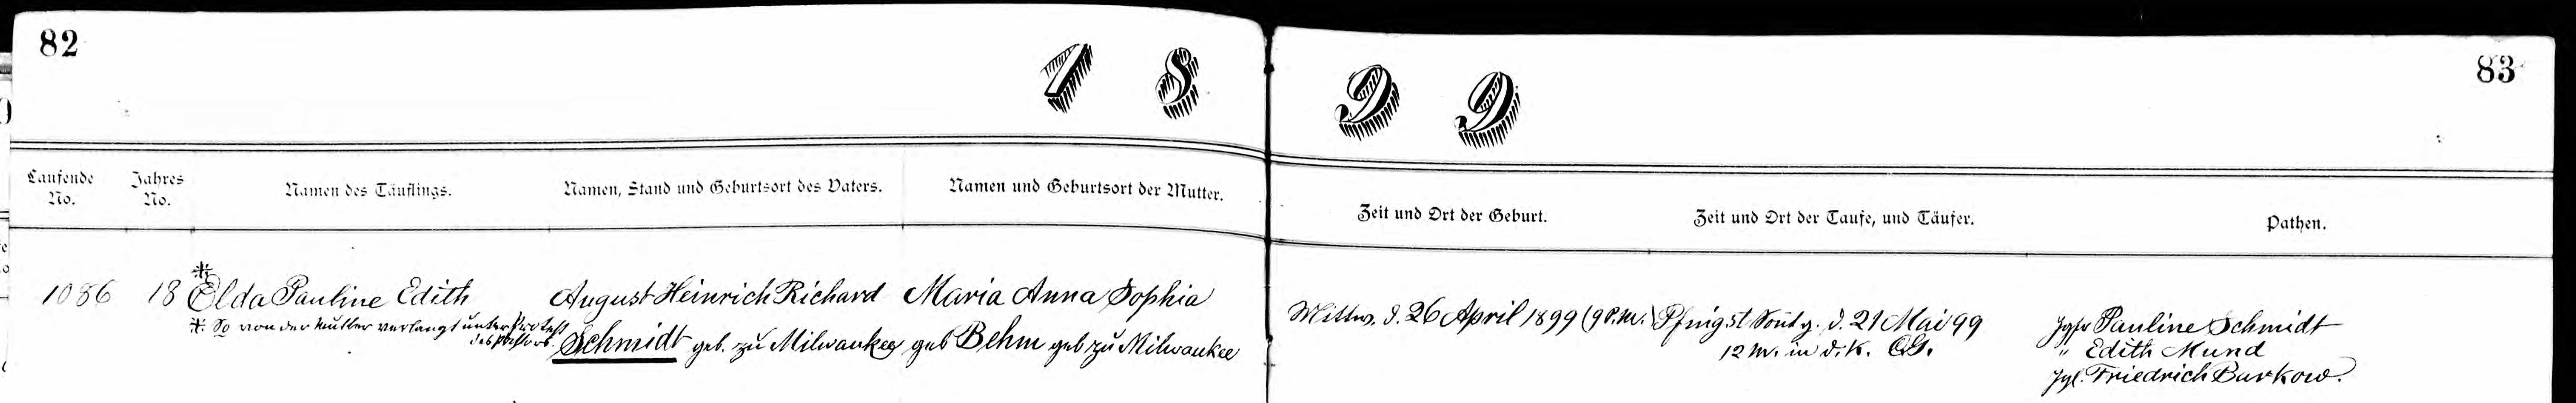 82
1 8 9 9
83
Laufende No.
Jahres No.
Namen des Täuflings.
Namen, Stand und Geburtsort des Vaters.
Namen und Geburtsort der Mutter.
Zeit und Ort der Geburt.
Zeit und Ort der Taufe, und Täufer.
Pathen.
1086
18
* Elda Pauline Edith
*. So von der Mutter verlangt unter Protest
des Pastors.
August Heinrich Richard
Schmidt geb. zu Milwaukee
Maria Anna Sophia
geb Behm geb zu Milwaukee
Mittw. d. 26 April 1899 (9 P.M.)
Pfingst Sontg. d. 21 Mai 99
12 M. in d. K.
Jgfr Pauline Schmidt
" Edith Mund
Jgl. Friedrich Barkow.